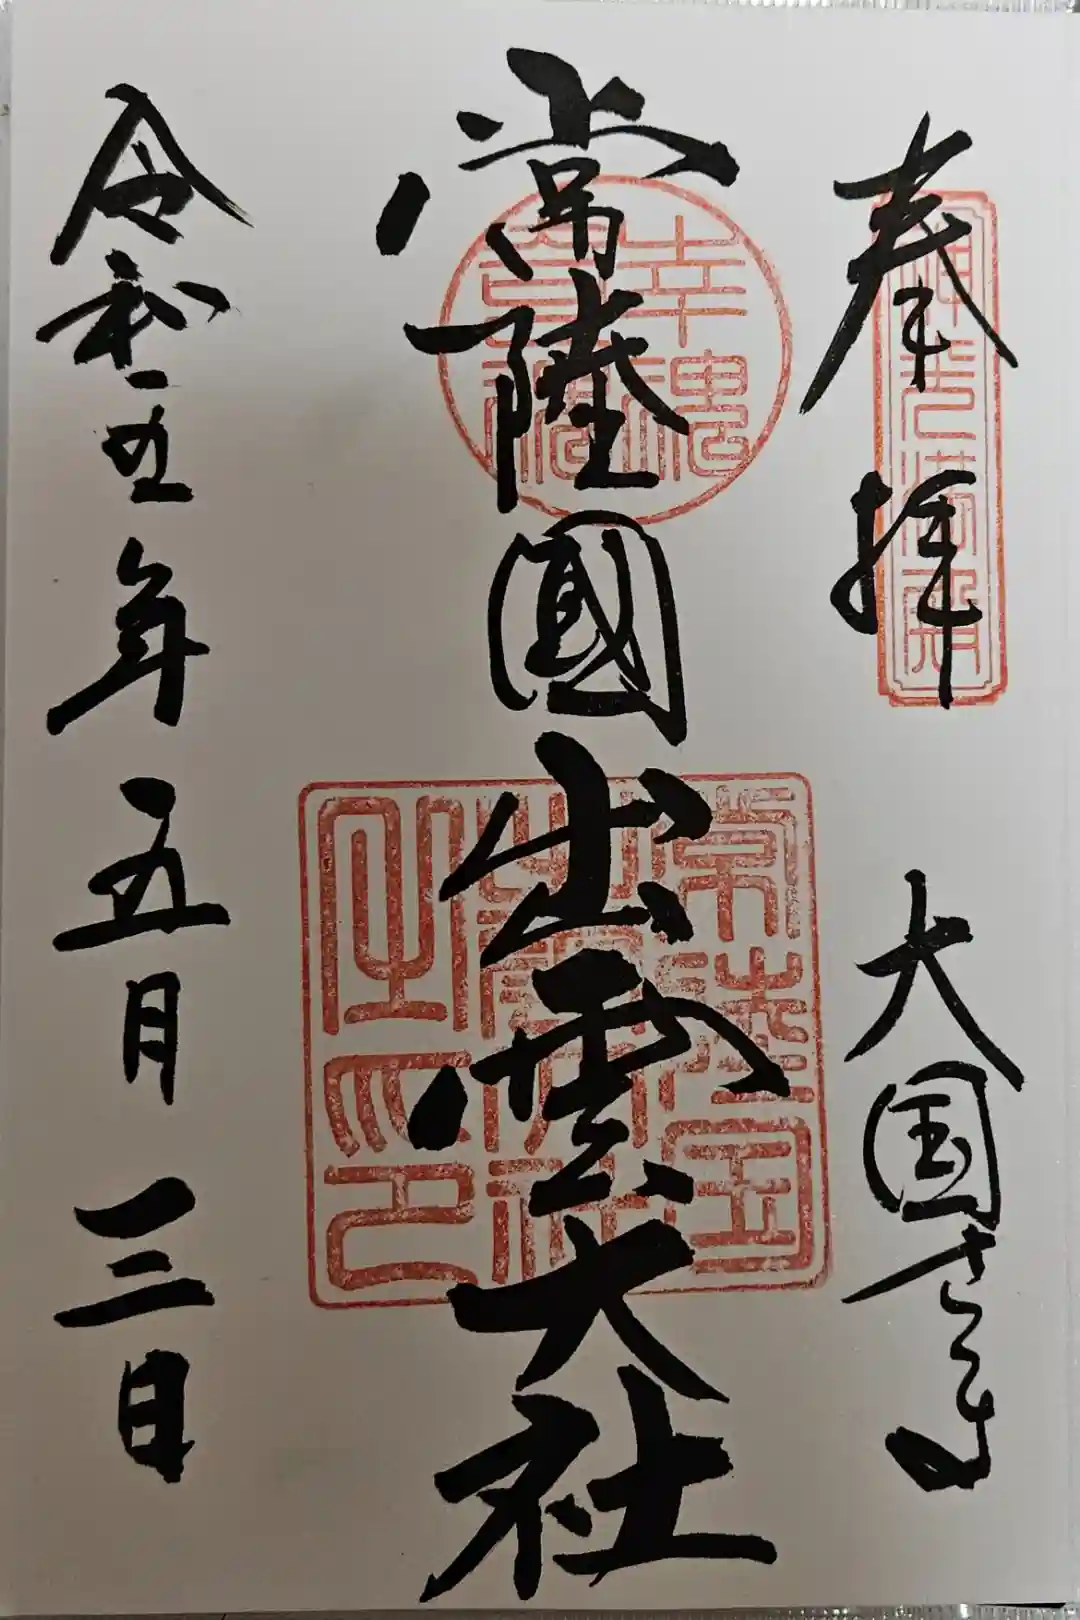 奉拝 大国さま
常陸國出雲大社
令和五年五月三日
幸魂
奇魂
常陸国
出雲大社
之印